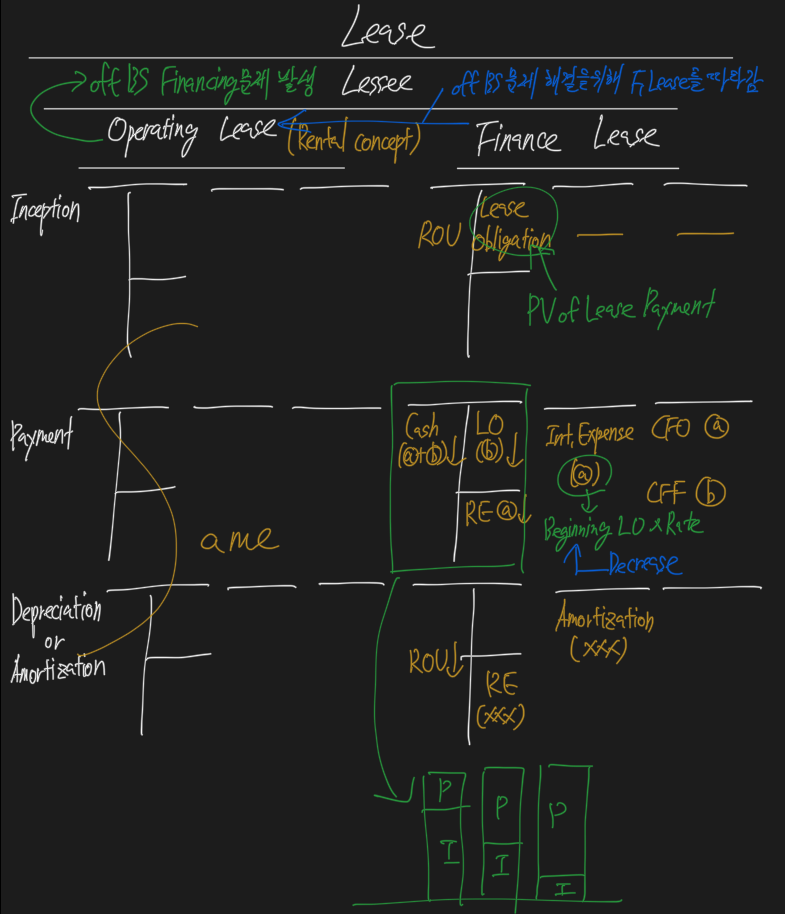 Lease
off BS Financing문제 발생
Lessee
off BS 문제 해결을위해 F, Lease를 따라감
Operating Lease
(Rental concept)
Finance Lease
Inception
ROU
Lease
obligation
PV of Lease Payment
Payment
Cash
(a+b)↓
LO
(b)↓
RE ⓐ↓
Int. Expense
(ⓐ)
CFO ⓐ
CFF ⓑ
Beginning LO x Rate
Decrease
ame
Depreciation
or
Amortization
ROU↓
RE
(xxx)
Amortization
(xxx)
P
I
P
I
P
I